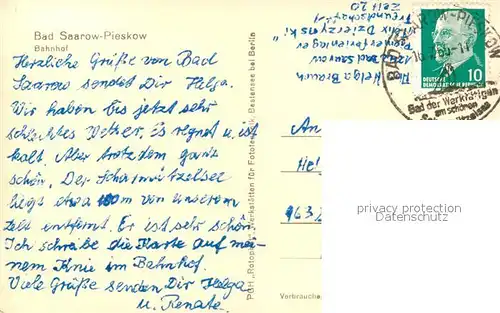 Bad Saarow-Pieskow
Bahnhof
Herzliche Grüße von Bad
Saarow sendet Dir Helga.
Wir haben bis jetzt sehr
schlechtes Wetter. Es regnet u. ist
kalt. Aber trotzdem ganz
schön. Der Scharmützelsee
liegt etwa 100m von unserem
Zelt entfernt. Er ist sehr schön.
Ich schreibe die Karte auf mei-
nem Knie im Bahnhof.
Viele Grüße senden Dir Helga
u. Renate.
Helga
Bad Saarow
Freundschaft
Zelt 20
PGH „Rotophot", Werkstätten für Fototechnik, Bestensee bei Berlin
BAD SAAROW-PIESKOW
Bad der Werktätigen
am schönen
DEUTSCHE
DEMOKRATISCHE REPUBLIK
10
An
Hel
963
Verbrauche
privacy protection
Datenschutz